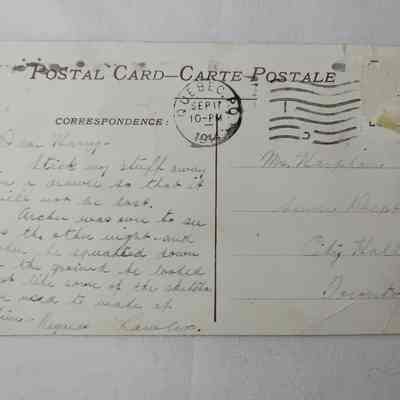 POSTAL CARD—CARTE POSTALE
QUEBEC, P.Q.
SEP 17
10-PM
CORRESPONDENCE:
Dear Harry-
Stick my stuff away
in a drawer so that it
will not be lost.
Archie was over to see
us the other night and
when he squatted down
on the ground he looked
just like some of the sketches
you used to make of
him- Regards
Mr.
City Hall
Toronto